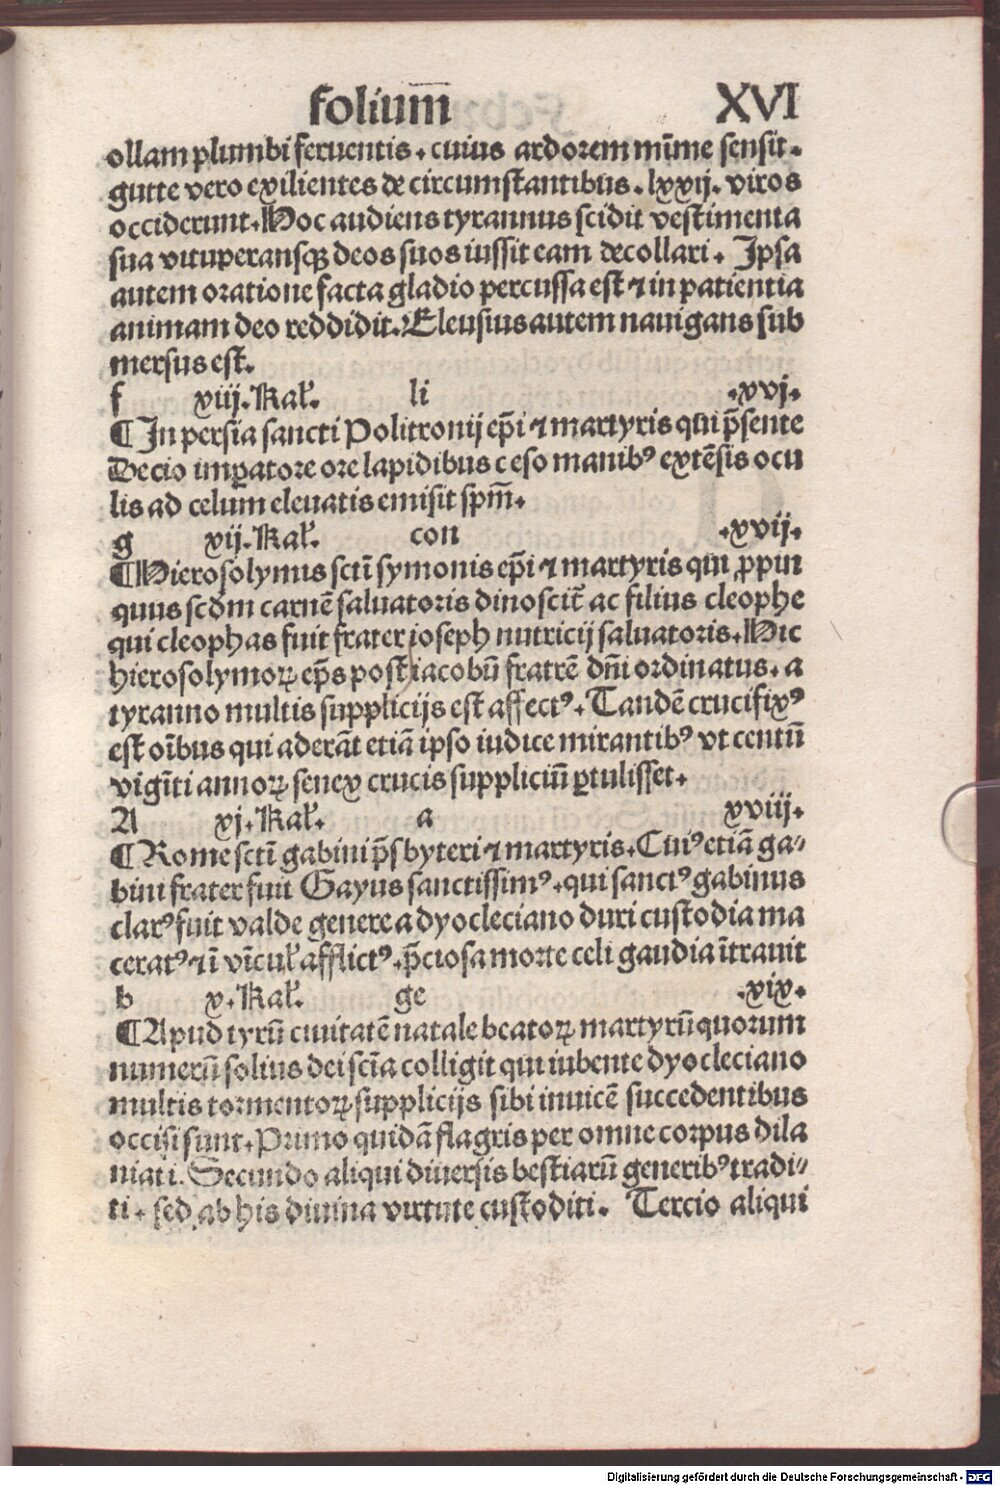 folium̅ XVI
ollam plumbi feruentis. cuius ardorem mīme sensit.
gutte vero exilientes de circumstantibus. lxxij. viros
occiderunt. Hoc audiens tyrannus scidit vestimenta
sua vituperansqꝫ deos suos iussit eam decollari. Ipsa
autem oratione facta gladio percussa est ⁊ in patientia
animam deo reddidit. Eleusius autem nauigans sub
mersus est.
f xiij. Kal̛. li .xvj.
¶ In persia sancti Politronij ep̄i ⁊ martyris qui p̄sente
Decio imꝑatore ore lapidibus ceso manibꝰ extēsis ocu
lis ad celum eleuatis emisit spm̄.
g xij. Kal̛. con .xvij.
¶ Hierosolymus sctī symonis ep̄i ⁊ martyris qui ꝓpin
quus scdm carnē saluatoris dinoscit᷑ ac filius cleophe
qui cleophas fuit frater ioseph nutricij saluatoris. Hic
hierosolymoꝝ ep̄s post iacobū fratrē dn̄i ordinatus. a
tyranno multis supplicijs est affectꝰ. Tandē crucifixꝰ
est oībus qui aderāt etiā ipso iudice mirantibꝰ vt centū
vigīti annoꝝ senex crucis suppliciū ꝑtulisset.
A xj. Kal̛. a xviij.
¶ Rome sctī gabini p̄sbyteri ⁊ martyris. Cuiꝰ etiā ga⸗
bini frater fuit Gayus sanctissimꝰ. qui sanctꝰ gabinus
clarꝰ fuit valde genere a dyocleciano duri custodia ma
ceratꝰ ⁊ ī vīcul̛ afflictꝰ. p̄ciosa morte celi gaudia ītrauit
b x. Kal̛. ge .xix.
¶ Apud tyrū ciuitatē natale beatoꝝ martyrū quorum
numerū solius dei scīa colligit qui iubente dyocleciano
multis tormentoꝝ supplicijs sibi inuicē succedentibus
occisi sunt. Primo quidā flagris per omne corpus dila
niati. Secundo aliqui diuersis bestiarū generibꝰ tradi⸗
ti. sed ab his diuina virtute custoditi. Tercio aliqui
Digitalisierung gefördert durch die Deutsche Forschungsgemeinschaft - DFG